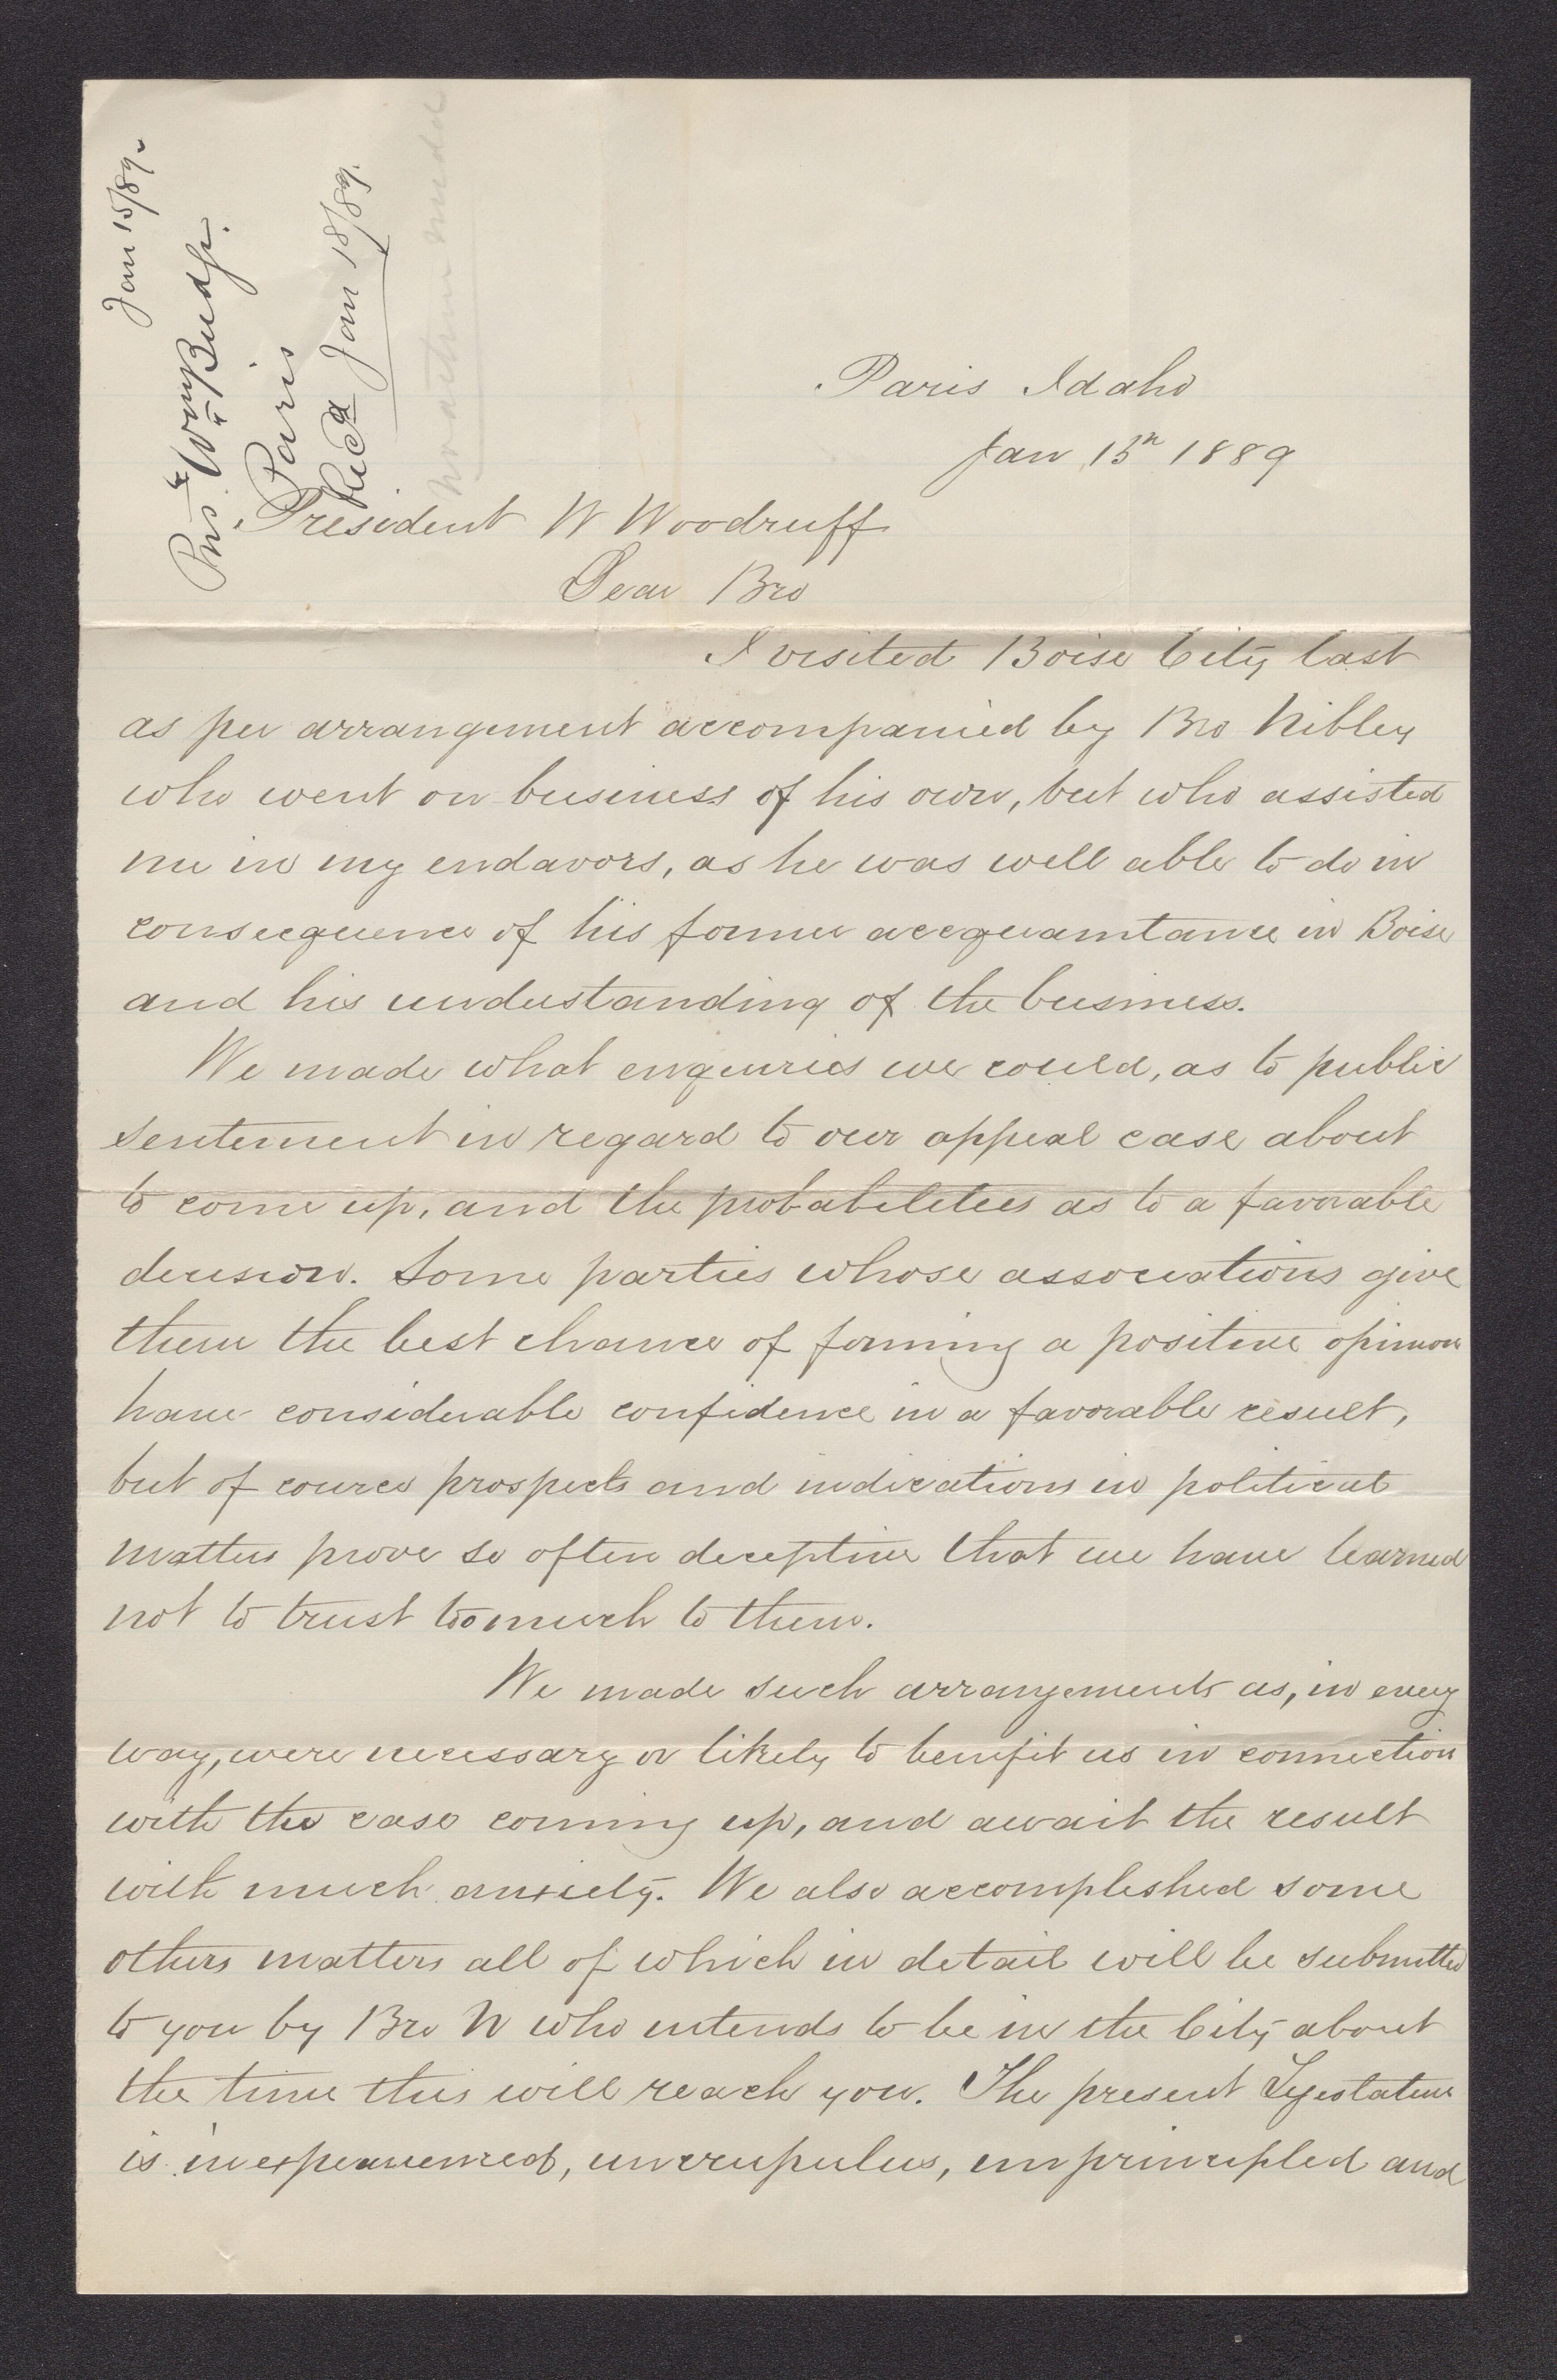 Jan 15/89.
Prest Wm Budge.
Paris
Recd Jan 18/89.
Paris Idaho
Jan 15th 1889
President W Woodruff
Dear Bro
I visited Boise City last
as per arrangement accompanied by Bro Nibley
who went on business of his own, but who assisted
me in my endavors, as he was well able to do in
consecquence of his former accquaintance in Boise
and his understanding of the business.
We made what enquiries we could, as to public
sentiment in regard to our appeal case about
to come up, and the probabilities as to a favorable
decision. Some parties whose associations give
them the best chance of forming a positive opinion
have considerable confidence in a favorable result,
but of cource prospects and indications in political
matters prove so often deceptive that we have learned
not to trust too much to them.
We made such arrangements as, in every
way, were necessary or likely to benifit us in connection
with the case coming up, and await the result
with much anxiety. We also accomplished some
others matters all of which in detail will be submitted
to you by Bro N who intends to be in the City about
the time this will reach you. The present Legislature
is inexperienced, uncrupulus, unprincipled and